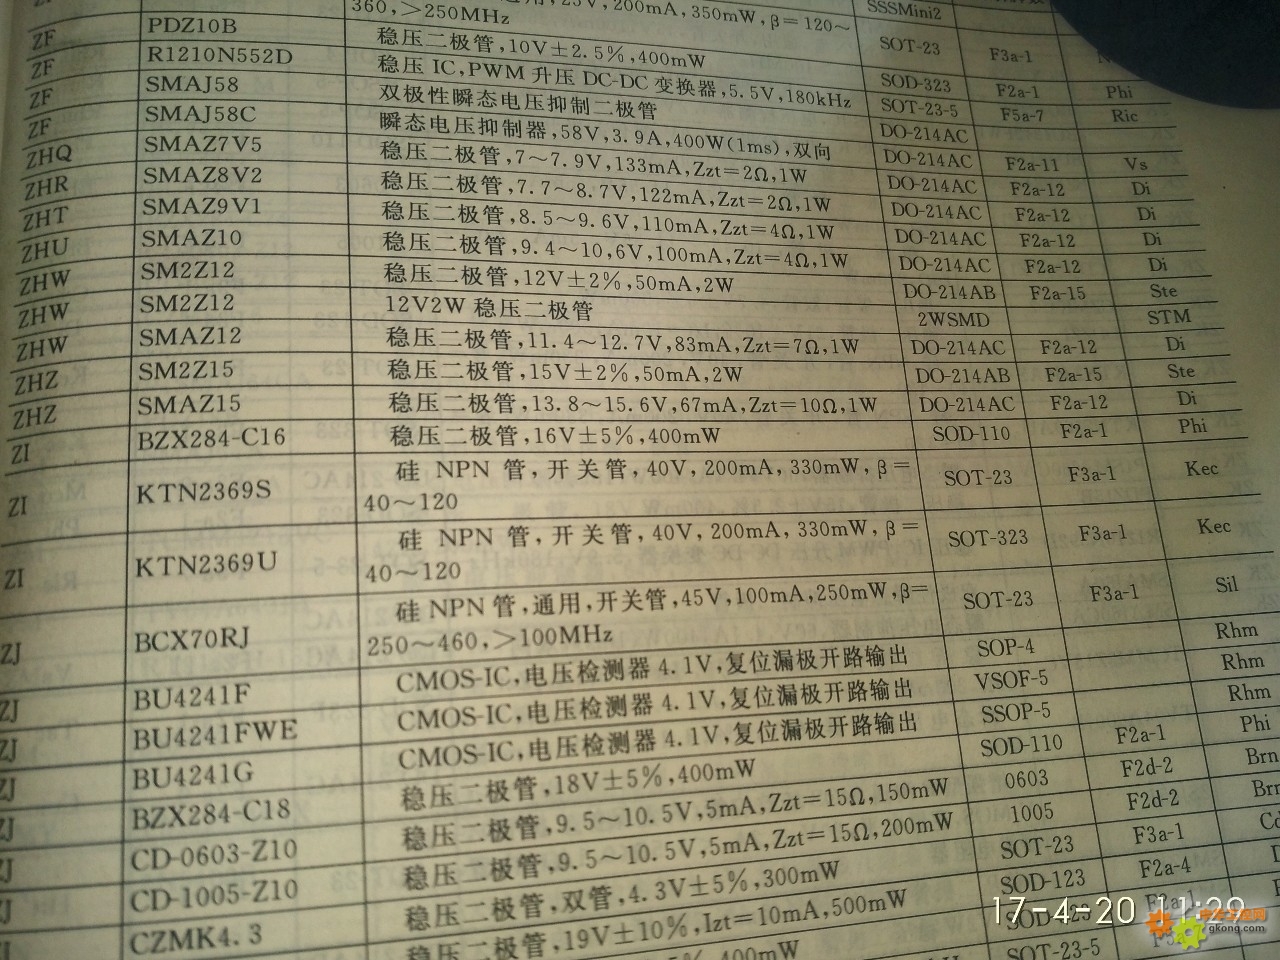 200mA,350mW,β=120~ SSSMini2
360,>250MHz SOT-23 F3a-1
ZF PDZ10B 稳压二极管,10V±2.5%,400mW SOD-323 F2a-1 Phi
ZF R1210N552D 稳压IC,PWM升压DC-DC变换器,5.5V,180kHz SOT-23-5 F5a-7 Ric
ZF SMAJ58 双极性瞬态电压抑制二极管 DO-214AC
ZF SMAJ58C 瞬态电压抑制器,58V,3.9A,400W(1ms),双向 DO-214AC F2a-11 Vs
ZHQ SMAZ7V5 稳压二极管,7~7.9V,133mA,Zzt=2Ω,1W DO-214AC F2a-12 Di
ZHR SMAZ8V2 稳压二极管,7.7~8.7V,122mA,Zzt=2Ω,1W DO-214AC F2a-12 Di
ZHT SMAZ9V1 稳压二极管,8.5~9.6V,110mA,Zzt=4Ω,1W DO-214AC F2a-12 Di
ZHU SMAZ10 稳压二极管,9.4~10,6V,100mA,Zzt=4Ω,1W DO-214AC F2a-12 Di
ZHW SM2Z12 稳压二极管,12V±2%,50mA,2W DO-214AB F2a-15 Ste
ZHW SM2Z12 12V2W 稳压二极管 2WSMD STM
ZHW SMAZ12 稳压二极管,11.4~12.7V,83mA,Zzt=7Ω,1W DO-214AC F2a-12 Di
ZHZ SM2Z15 稳压二极管,15V±2%,50mA,2W DO-214AB F2a-15 Ste
ZHZ SMAZ15 稳压二极管,13.8~15.6V,67mA,Zzt=10Ω,1W DO-214AC F2a-12 Di
ZI BZX284-C16 稳压二极管,16V±5%,400mW SOD-110 F2a-1 Phi
ZI KTN2369S 硅 NPN 管,开关管,40V,200mA,330mW,β= SOT-23 F3a-1 Kec
40~120
ZI KTN2369U 硅 NPN 管,开关管,40V,200mA,330mW,β= SOT-323 F3a-1 Kec
40~120
ZJ BCX70RJ 硅NPN管,通用,开关管,45V,100mA,250mW,β= SOT-23 F3a-1 Sil
250~460,>100MHz
ZJ BU4241F CMOS-IC,电压检测器4.1V,复位漏极开路输出 SOP-4 Rhm
ZJ BU4241FWE CMOS-IC,电压检测器4.1V,复位漏极开路输出 VSOF-5 Rhm
ZJ BU4241G CMOS-IC,电压检测器4.1V,复位漏极开路输出 SSOP-5 Rhm
ZJ BZX284-C18 稳压二极管,18V±5%,400mW SOD-110 F2a-1 Phi
ZJ CD-0603-Z10 稳压二极管,9.5~10.5V,5mA,Zzt=15Ω,150mW 0603 F2d-2 Brn
ZJ CD-1005-Z10 稳压二极管,9.5~10.5V,5mA,Zzt=15Ω,200mW 1005 F2d-2 Brn
CZMK4.3 稳压二极管,双管,4.3V±5%,300mW SOT-23 F3a-1
稳压二极管,19V±10%,Izt=10mA,500mW SOD-123 F2a-4
400mW
SOT-23-5
17-4-20 11:29
gkong.com